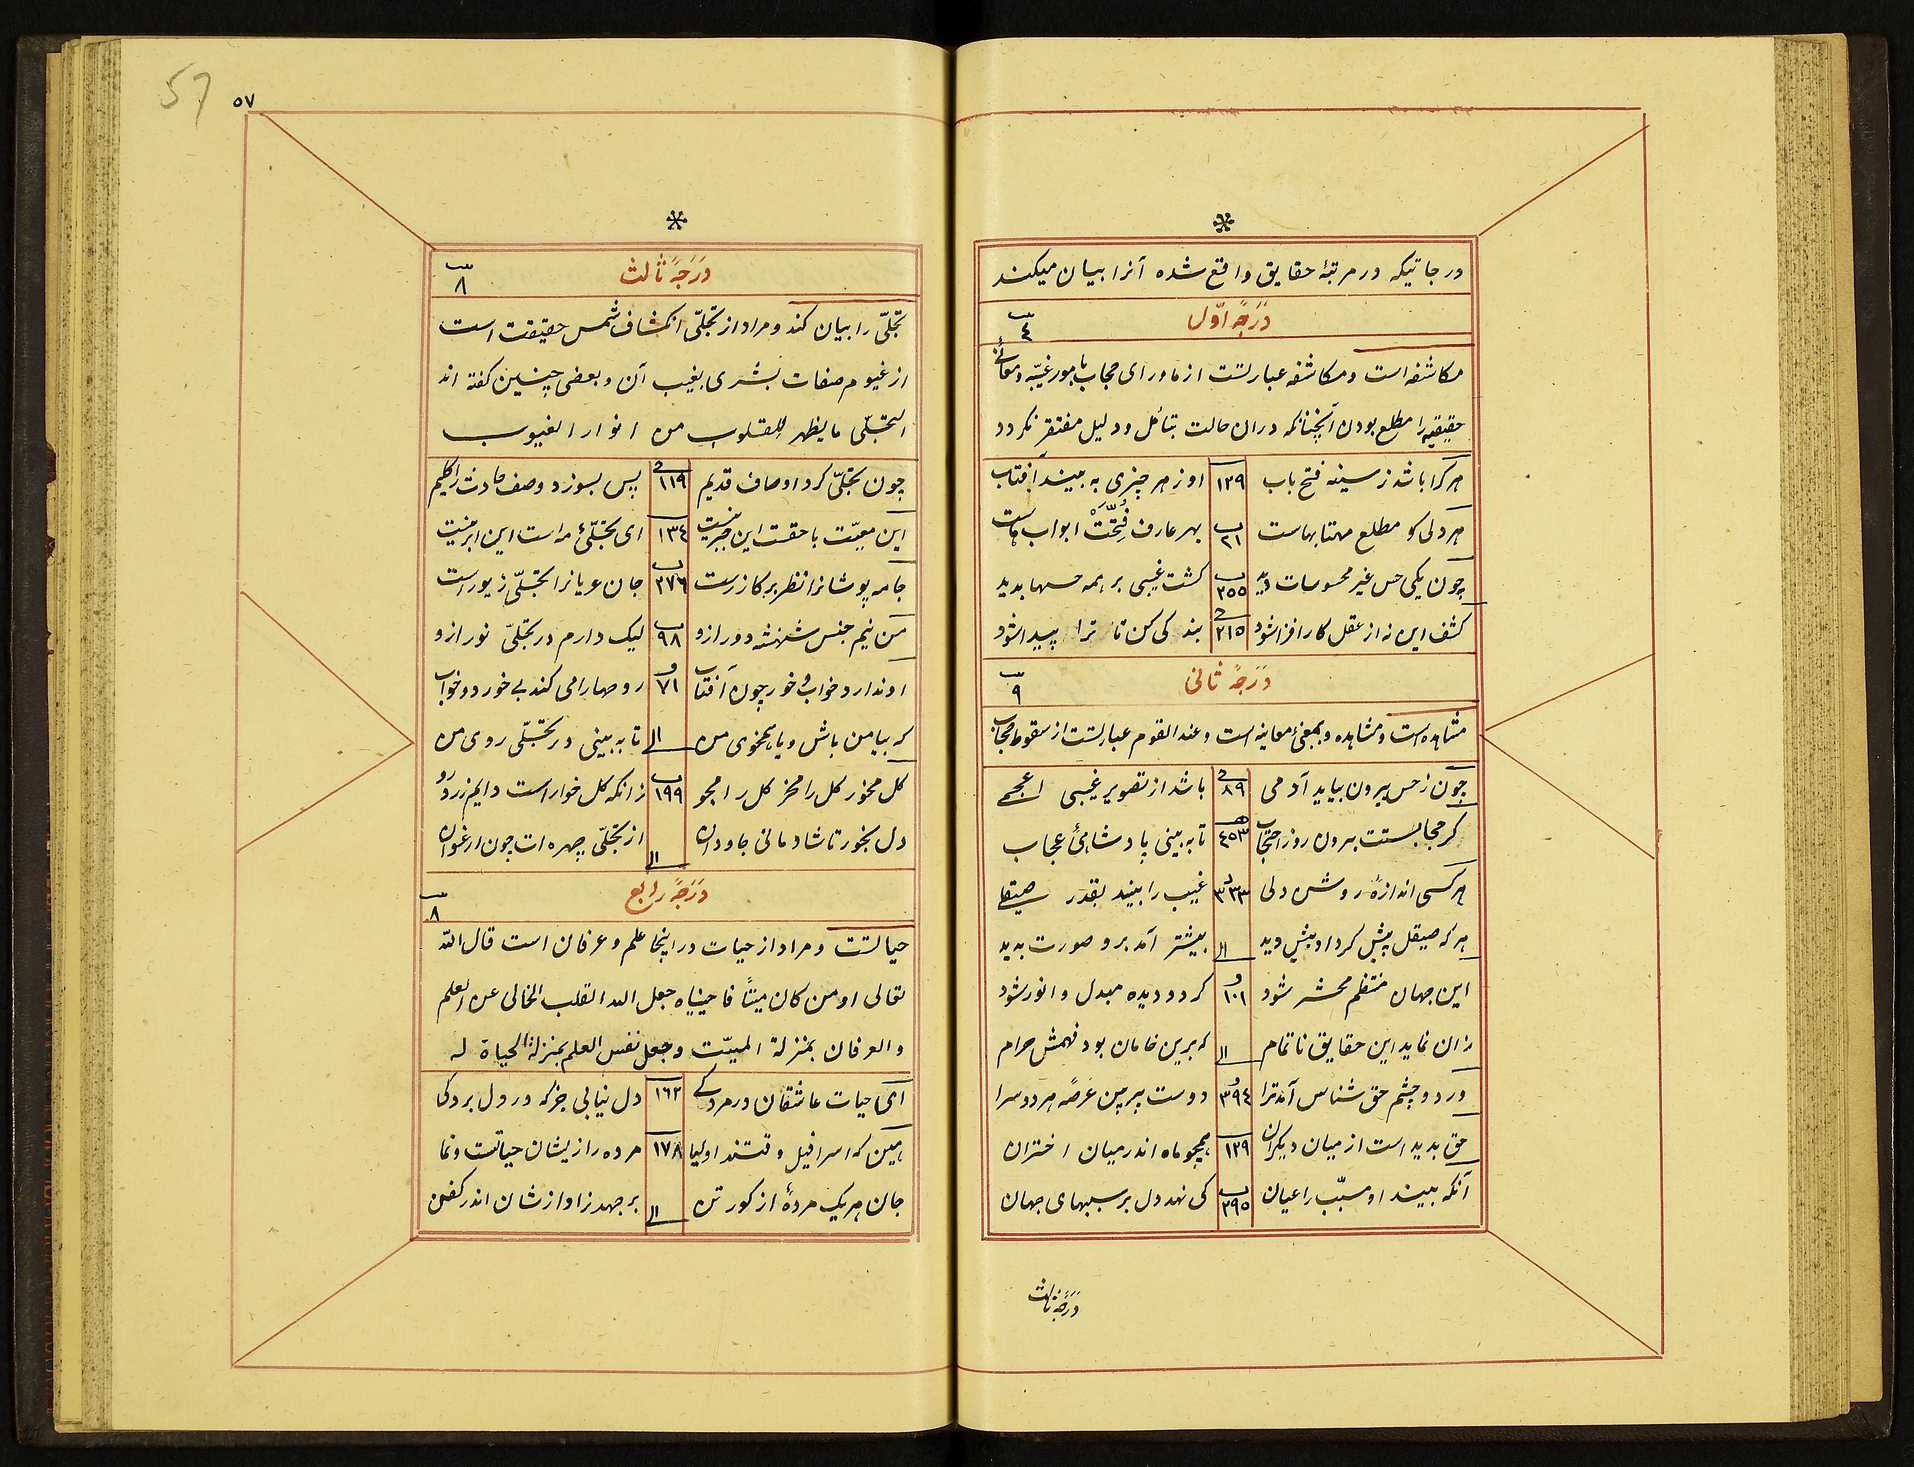 درجاتیکه در مرتبهٔ حقایق واقع شده آنرا بیان میکند
درجهٔ اوّل
ب ٤
مکاشفه است و مکاشفه عبارتست از ماورای حجاب بامور غیبیّه و معانیٔ
حقیقیه را مطلع بودن آنچنانکه در ان حالت بتأمل و دلیل مفتقر نکردد
هر کرا باشد ز سینه فتح باب ١٢٩ او ز هر چیزی به بیند آفتاب
هر دلی کو مطلع مهتابهاست ب ٢١ بهر عارف فُتِّحَتْ ابوابهاست
چون یکی حس غیر محسوسات دید ب ٢٥٥ کشت غیبی بر همه حسها بدید
کشف این نه از عقل کارافزا شود ح ٢١٥ بندکی کن تا ترا پیدا شود
درجهٔ ثانی
ب ٩
مشاهده است و مشاهده بمعنیٔ معاینه است و عند القوم عبارتست از سقوط حجاب
چون ز حس بیرون بیاید آدمی ح ٨٩ باشد از تصویر غیبی اعجمی
کر حجابستت برون رو ز احتجاب ٤٥٣ تا به بینی پادشاهیٔ عجاب
هر کسی اندازهٔ روشن دلی د ٣٣٣ غیب را بیند بقدر صیقلی
هر که صیقل بیش کرد او بیش دید الـ بیشتر آمد برو صورت بدید
این جهان منتظم محشر شود و ١٠١ کر دو دیده مبدل و انور شود
زان نماید این حقایق ناتمام الـ که برین خامان بود فهمش حرام
ور دو چشم حق شناس آمد ترا و ٣٩٤ دوست پر بین عرصهٔ هر دو سرا
حق بدید است از میان دیکران ١٢٩ همچو ماه اندر میان اختران
آنکه بیند او مسبّب را عیان ب ٣٩٥ کی نهد دل بر سببهای جهان
درجهٔ ثالث
57
٥٧
درجهٔ ثالث
ب ٨
تجلّی را بیان کند و مراد از تجلّی انکشاف شمس حقیقت است
از غیوم صفات بشری بغیب آن و بعضی چنین کفته اند
التجلّی ما یظهر للقلوب من انوار الغیوب
چون تجلّی کرد اوصاف قدیم ح ١١٩ پس بسوزد وصف حادث را کلیم
این معیّت با حقست این جبر نیست ١٣٤ ای تجلّیٔ مه است این ابر نیست
جامه پوشانرا نظر بر کازرست ب ٢٧٦ جان عریانرا تجلّی زیورست
من نیم جنس شهنشه دور ازو ب ٩٨ لیک دارم در تجلّی نور ازو
او ندارد خواب و خور چون آفتاب و ٧١ روحها را می کند بی خورد و خواب
که بیا من باش و یا همخوی من الـ تا به بینی در تجلّی روی من
کل مخور کل را مخر کل را مجو ب ١٩٩ زانکه کل خوار است دایم زرد رو
دل بخور تا شادمانی جاودان الـ از تجلّی چهره ات چون ارغوان
درجهٔ رابع
ب ٨
حیاتست و مراد از حیات در اینجا علم و عرفان است قال اللّه
تعالی اومن کان میتاً فاحییناه جعل الله القلب الخالی عن العلم
و العرفان بمنزلة المیّت و جعل نفس العلم بمنزلة الحیاة له
ای حیات عاشقان در مردکی ١٦٢ دل نیابی جز که در دل بردکی
هین که اسرافیل وقتند اولیا ١٧٨ مرده را زیشان حیاتست و نما
جان هر یک مردهٔ از کور تن الـ بر جهد ز اوازشان اندر کفن